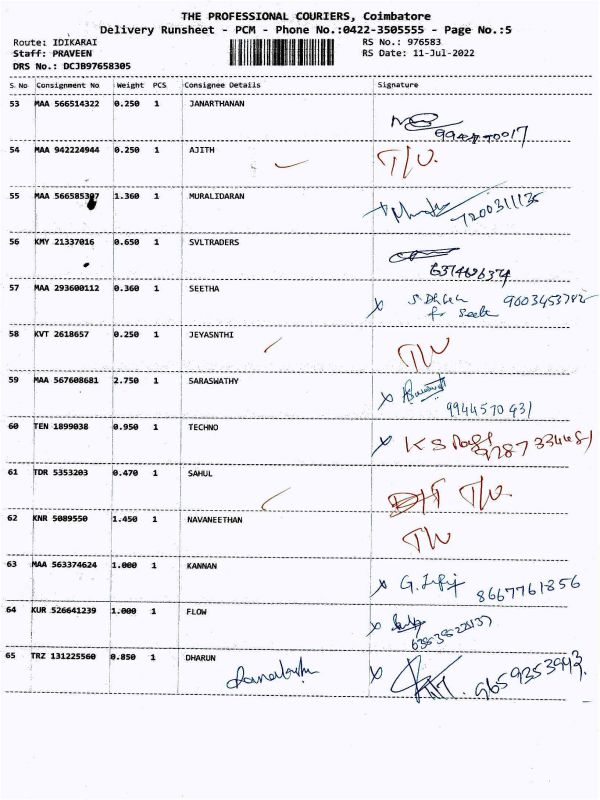 THE PROFESSIONAL COURIERS, Coimbatore
Delivery Runsheet - PCM - Phone No.:0422-3505555 - Page No.:5
Route: IDIKARAI RS No.: 976583
Staff: PRAVEEN RS Date: 11-Jul-2022
DRS No.: DCJB97658305
S. No Consignment No Weight PCS Consignee Details Signature
53 MAA 566514322 0.250 1 JANARTHANAN
54 MAA 942224944 0.250 1 AJITH T/U.
55 MAA 566585307 1.360 1 MURALIDARAN
7200311135
56 KMY 21337016 0.650 1 SVLTRADERS
6374626374
57 MAA 293600112 0.360 1 SEETHA X 9003453782
for Seetha
58 KVT 2618657 0.250 1 JEYASNTHI T/U
59 MAA 567608681 2.750 1 SARASWATHY X
9944570431
60 TEN 1899038 0.950 1 TECHNO X K S
61 TDR 5353203 0.470 1 SAHUL T/U.
62 KNR 5089550 1.450 1 NAVANEETHAN T/U
63 MAA 563374624 1.000 1 KANNAN X G. 8667761856
64 KUR 526641239 1.000 1 FLOW X
65 TRZ 131225560 0.850 1 DHARUN X 9659353943.